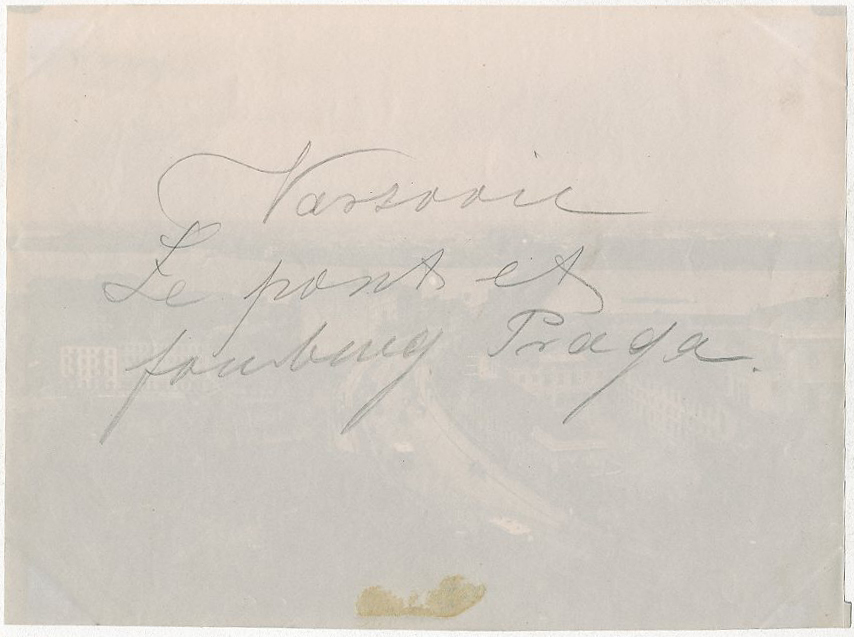 Varsovie
Le pont et
fouburg Praga.